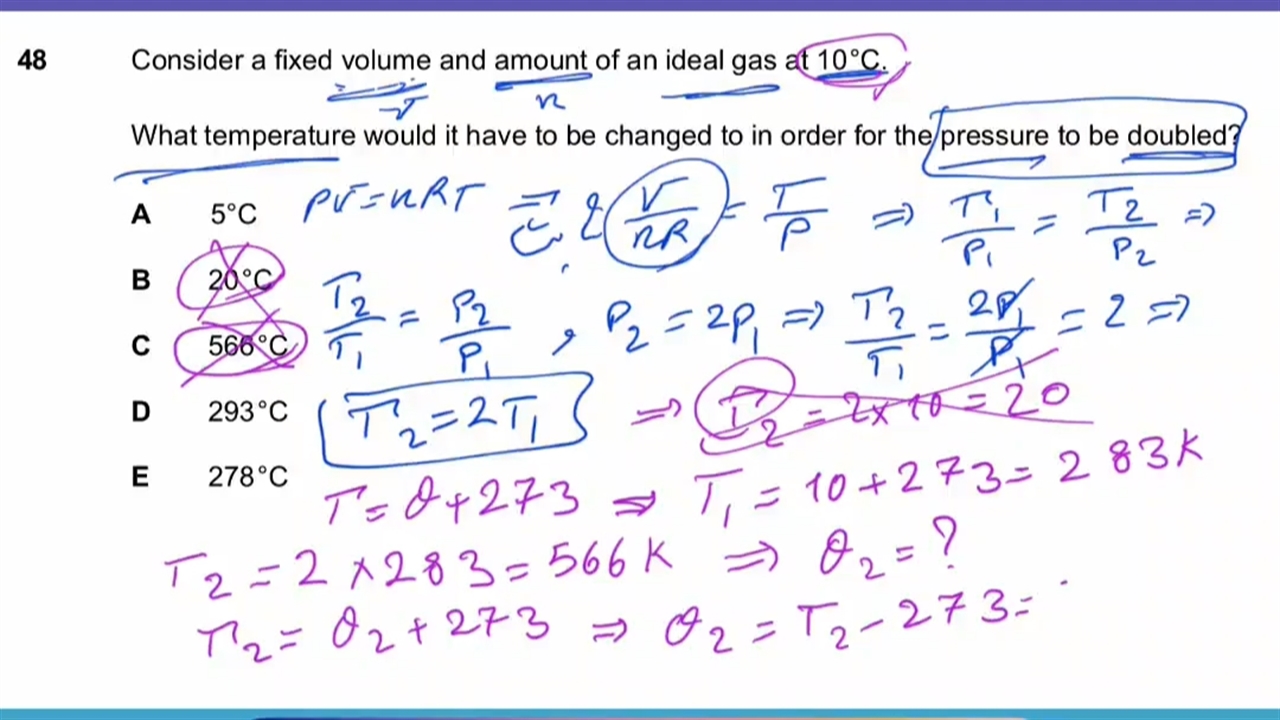 48 Consider a fixed volume and amount of an ideal gas at 10°C.
V n
What temperature would it have to be changed to in order for the pressure to be doubled?
A 5°C
PV = nRT ⇒ V/nR = T/P ⇒ T₁/P₁ = T₂/P₂ ⇒
B 20°C
T₂/T₁ = P₂/P₁ , P₂ = 2P₁ ⇒ T₂/T₁ = 2P₁/P₁ = 2 ⇒
C 566°C
D 293°C
T₂ = 2T₁ ⇒ T₂ = 2×10 = 20
E 278°C
T = θ + 273 ⇒ T₁ = 10 + 273 = 283K
T₂ = 2 × 283 = 566K ⇒ θ₂ = ?
T₂ = θ₂ + 273 ⇒ θ₂ = T₂ - 273 =